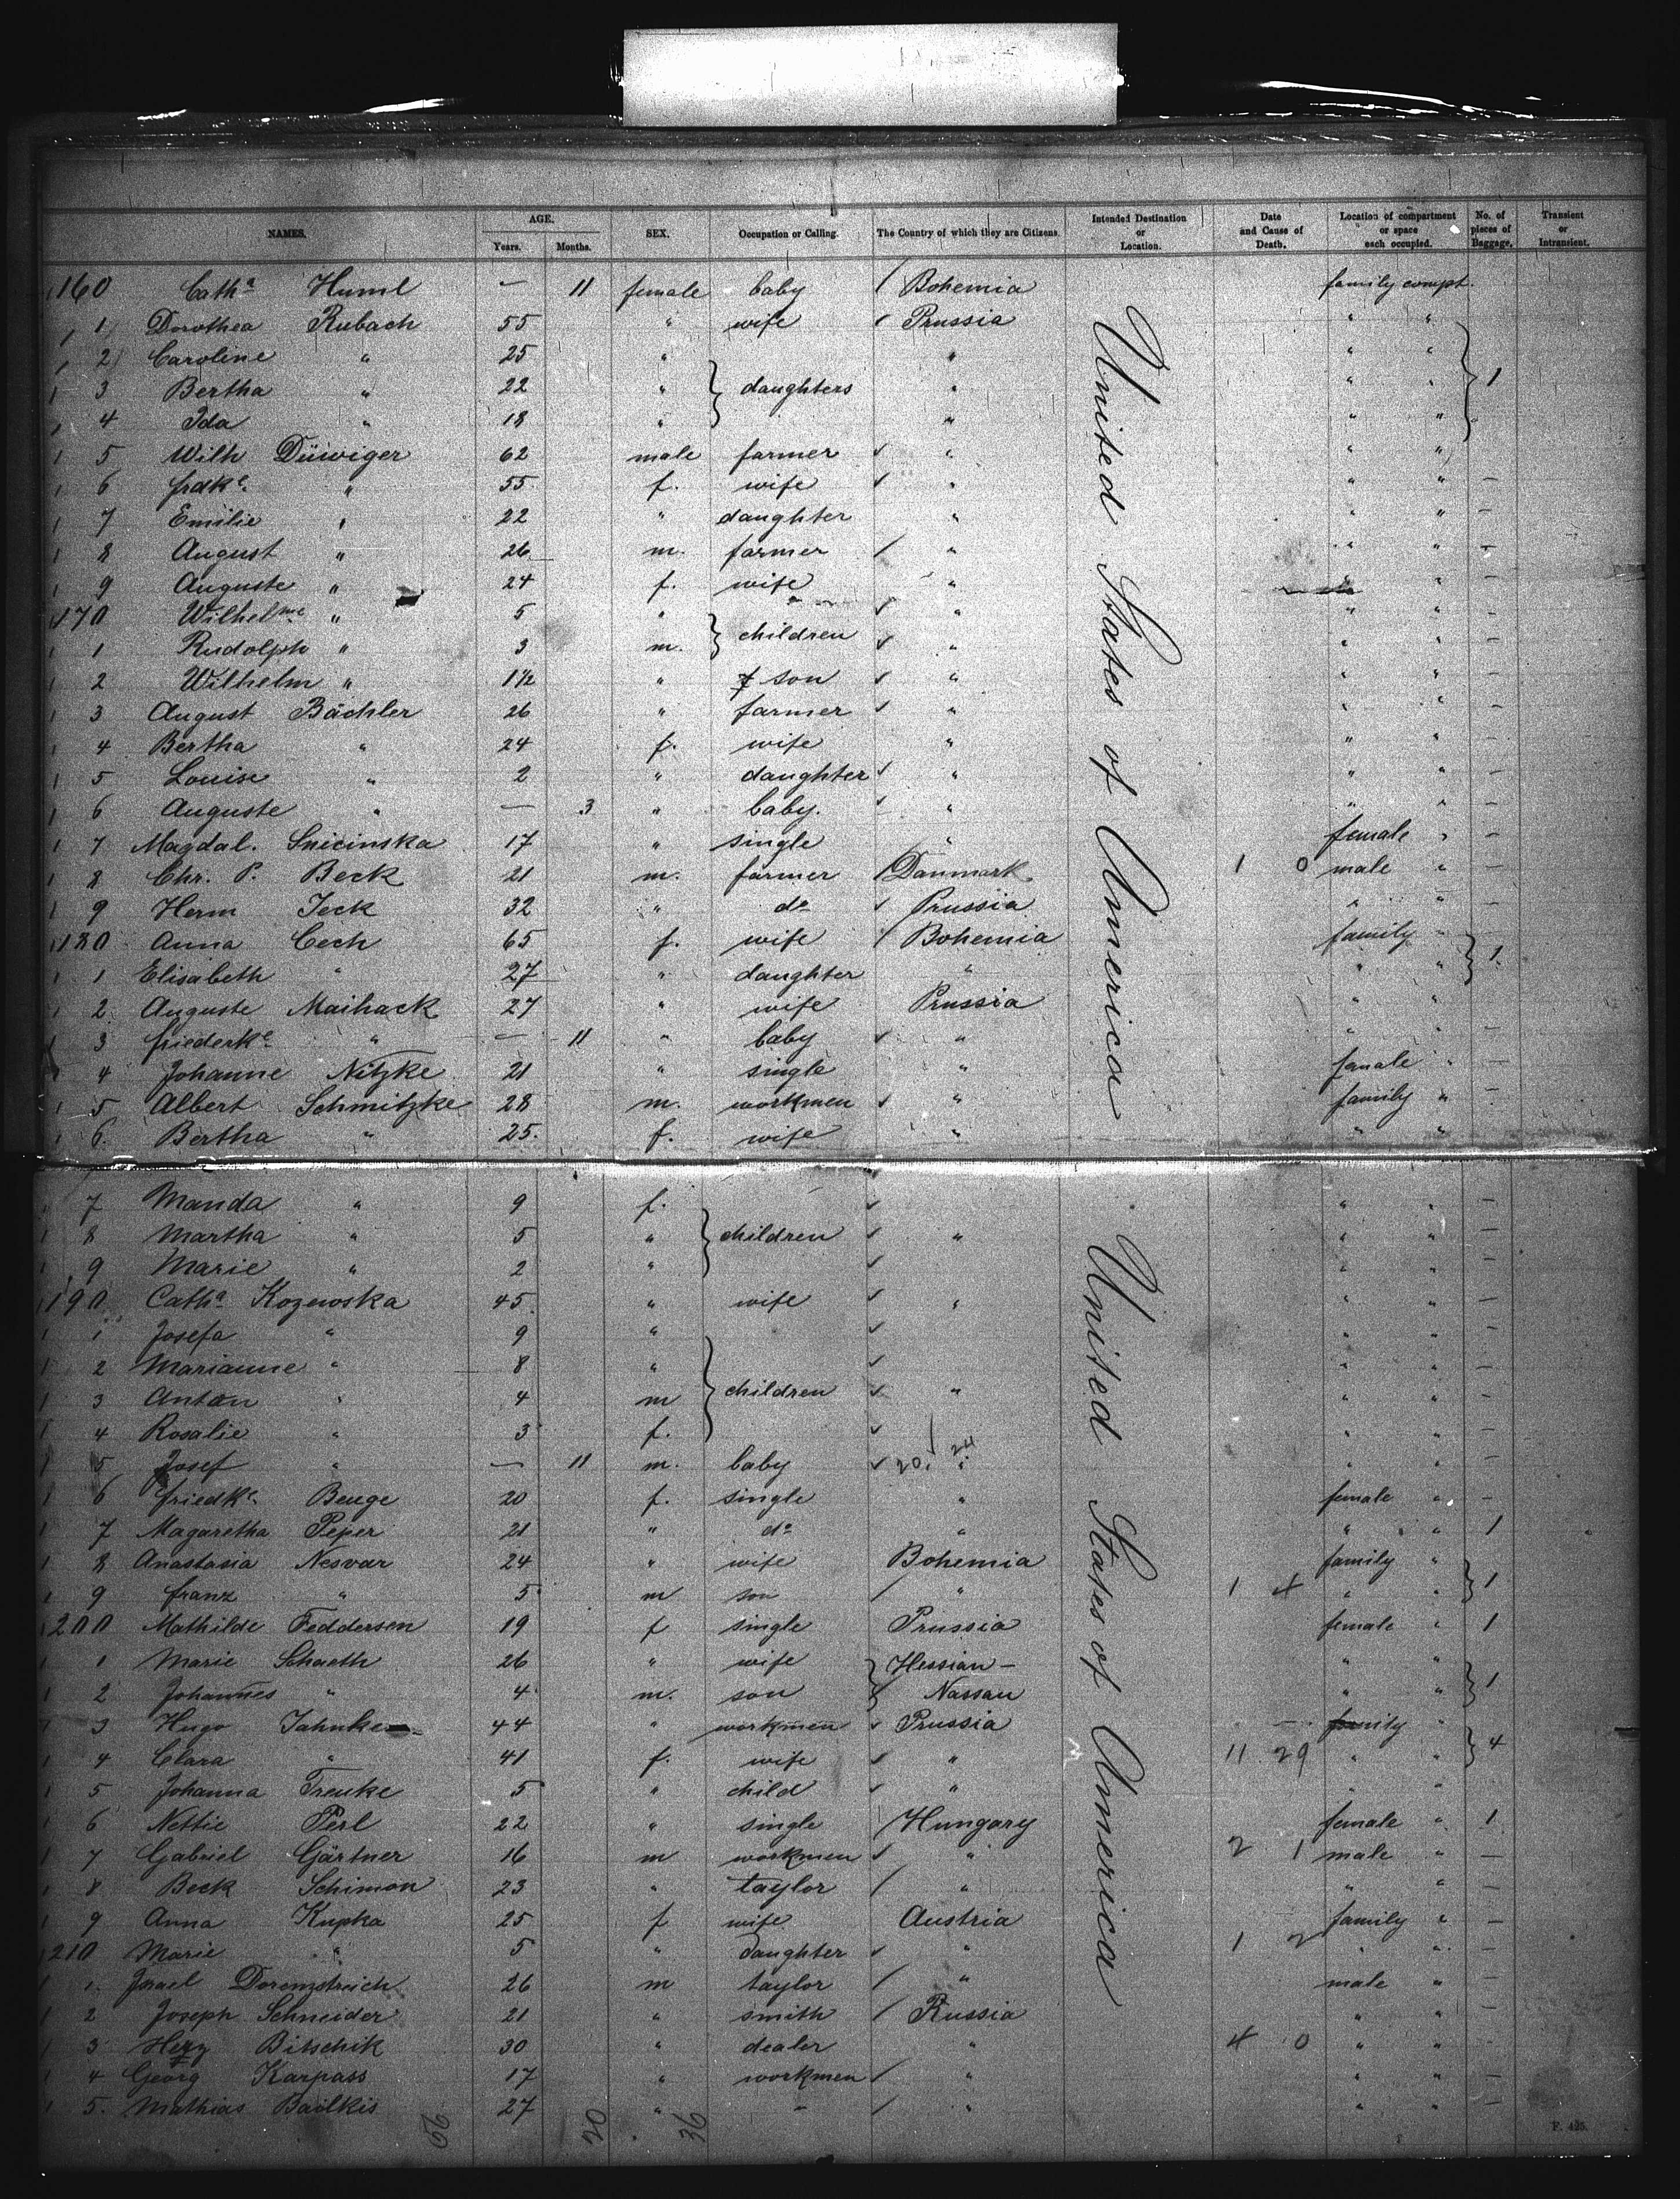 NAMES. AGE. Years. Months. SEX. Occupation or Calling. The Country of which they are Citizens. Intended Destination or Location. Date and Cause of Death. Location of compartment or space each occupied. No. of pieces of Baggage. Transient or Intransient.
160 Cathª Huml — 11 female baby / Bohemia family compt.
1 Dorothea Rubach 55 " wife / Prussia " "
2 Caroline " 25 " " " "
3 Bertha " 22 " } daughters " " " } 1
4 Ida " 18 " " " "
5 Wilh Düwiger 62 male farmer ✓ " " "
6 frdkᵉ " 55 f. wife ✓ " " " —
7 Emilie " 22 " daughter " " " —
8 August " 26 m. farmer / " " " —
9 Auguste " 24 f. wife " " " —
170 Wilhelᵐᵉ " 5 " ✓ " " " —
1 Rudolph " 3 m. } children ✓ " " " —
2 Wilhelm " 1½ " son ✓ " " " —
3 August Bächler 26 " farmer ✓ " " " —
4 Bertha " 24 f. wife " " " —
5 Louise " 2 " daughter ✓ " " " —
6 Auguste " — 3 " baby. ✓ " " " —
7 Magdal. Snicinska 17 " single " female " —
8 Chr. P. Beck 21 m. farmer / Danmark 1 0 male " —
9 Herm Jeck 32 " dº ✓ Prussia " " —
180 Anna Cech 65 f. wife / Bohemia family "
1 Elisabeth " 27 " daughter " " " } 1.
2 Auguste Maihack 27 " wife Prussia " "
3 friederkᵉ " — 11 " baby ✓ " " " —
4 Johanne Nitzke 21 " single " famale " —
5 Albert Schmitzke 28 m. workmen ✓ " family " —
6. Bertha " 25. f. wife " " "
United States of America
7 Manda " 9 f. ✓ " " —
8 Martha " 5 " } children ✓ " " " —
9 Marie " 2 " ✓ " " —
190 Cathª Kozewska 45 " wife ✓ " " " —
1 Josefa " 9 " ✓ " " —
2 Marianne " 8 " ✓ " " —
3 Anton " 4 m } children ✓ " " " —
4 Rosalie " 3 f. ✓ " " —
5 Josef " — 11 m. baby ✓ 20. 24 " " " —
6 friedkᵉ Beuge 20 f. single " female " —
7 Magaretha Peper 21 " dº " " " 1
8 Anastasia Nesvar 24 " wife Bohemia family "
9 franz " 5 m son / " 1 4 " " } 1
200 Mathilde Feddersen 19 f single Prussia female " 1
1 Marie Schaeth 26 " wife Hessian— " "
2 Johannes " 4 m. son Nassau " " } 1
3 Hugo Jahnke 44 " workmen ✓ Prussia family "
4 Clara " 41 f. wife ✓ " 11 29 " " } 4
5 Johanna Treuke 5 " child ✓ " " "
6 Nettie Perl 22 " single / Hungary female " 1
7 Gabriel Gärtner 16 m workmen ✓ " 2 1 male " —
8 Beck Schimon 23 " taylor / " " " —
9 Anna Kupka 25 f wife Austria family " —
210 Marie " 5 " daughter ✓ " 1 2 " " —
1. Israel Doromzstreich 26 m taylor / " male " —
2 Joseph Schneider 21 " smith / Russia " " —
3 Herz Bitschik 30 " dealer " 4 0 " " —
4 Georg Karpass 17 " workmen / " " " —
5. Mathias Baölkis 27 " — / " " " —
United States of America
F. 425.